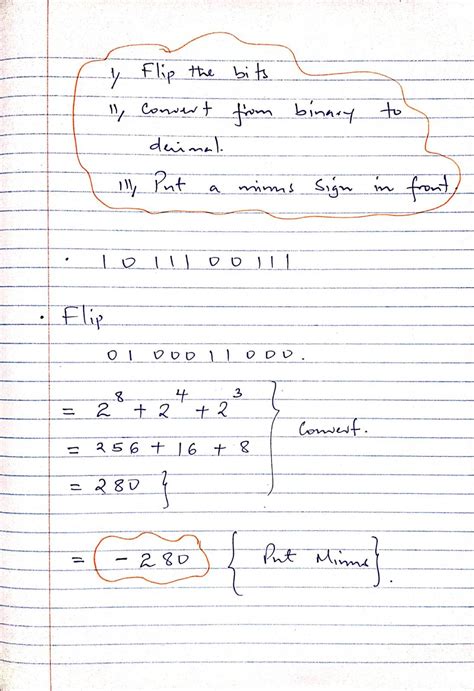 i) Flip the bits
ii) Convert from binary to
decimal.
iii) Put a minus sign in front.
· 1 0 1 1 1 0 0 1 1 1
· Flip
0 1 0 0 0 1 1 0 0 0 .
= 2⁸ + 2⁴ + 2³
= 256 + 16 + 8 } Convert.
= 280 }
= -280 { Put Minus } .